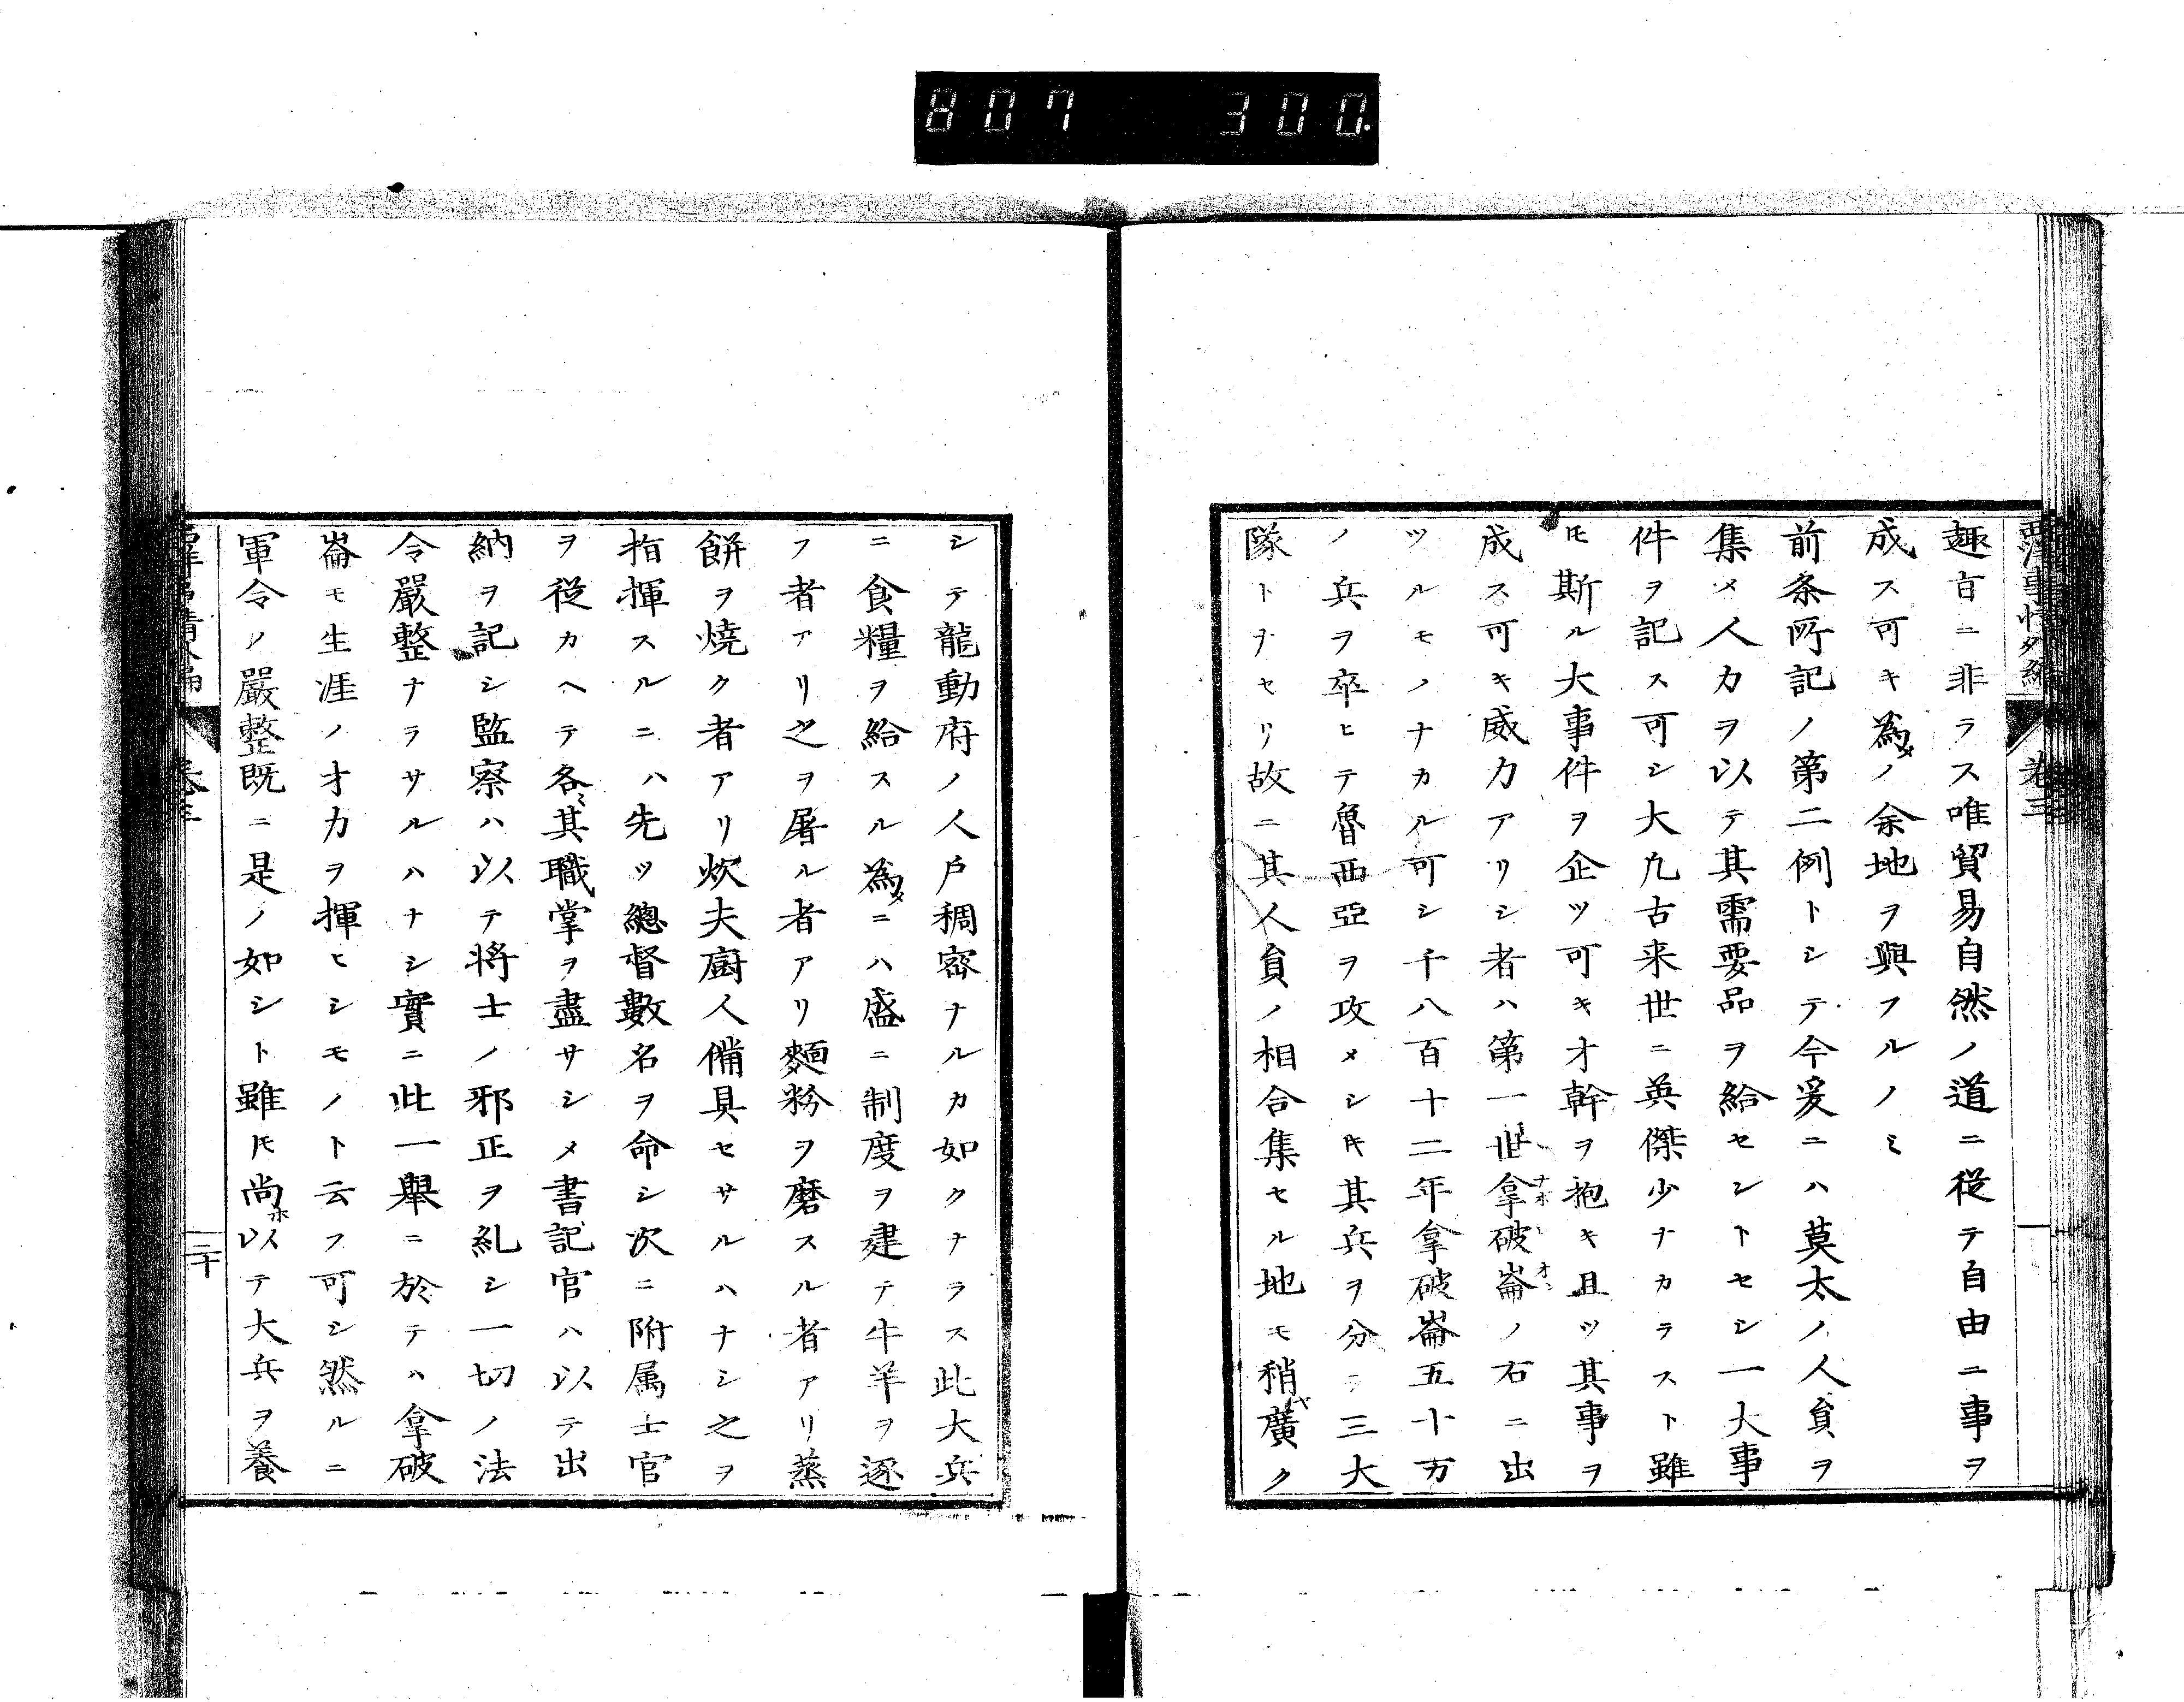 807 300.
西洋事情外編 卷三
趣旨ニ非ラス唯貿易自然ノ道ニ從テ自由ニ事ヲ
成ス可キ為メノ余地ヲ與フルノミ
前条所記ノ第二例トシテ今爰ニハ莫太ノ人負ヲ
集メ人力ヲ以テ其需要品ヲ給セントセシ一大事
件ヲ記ス可シ大凢古来世ニ英傑少ナカラスト雖
𪜈斯ル大事件ヲ企ツ可キオ幹ヲ抱キ且ツ其事ヲ
成ス可キ威力アリシ者ハ第一世拿破崙ノ右ニ出
ツルモノナカル可シ千八百十二年拿破崙五十万
ノ兵ヲ卒ヒテ魯西亞ヲ攻メシ𪜈其兵ヲ分テ三大
隊トナセリ故ニ其人負ノ相合集セル地モ稍ヤ廣ク
シテ龍動府ノ人戸稠密ナルカ如クナラス此大兵
ニ食糧ヲ給スル為メニハ盛ニ制度ヲ建テ牛羊ヲ逐
フ者アリ之ヲ屠ル者アリ麵粉ヲ磨スル者アリ蒸
餅ヲ燒ク者アリ炊夫廚人備具セサルハナシ之ヲ
指揮スルニハ先ツ總督數名ヲ命シ次ニ附属士官
ヲ從カヘテ各〻其職掌ヲ盡サシメ書記官ハ以テ出
納ヲ記シ監察ハ以テ将士ノ邪正ヲ糺シ一切ノ法
令嚴整ナラサルハナシ實ニ此一舉ニ於テハ拿破
崙モ生涯ノオカヲ揮ヒシモノト云フ可シ然ルニ
軍令ノ嚴整既ニ是ノ如シト雖𪜈尚ホ以テ大兵ヲ養
西洋事情外編 卷三 二十